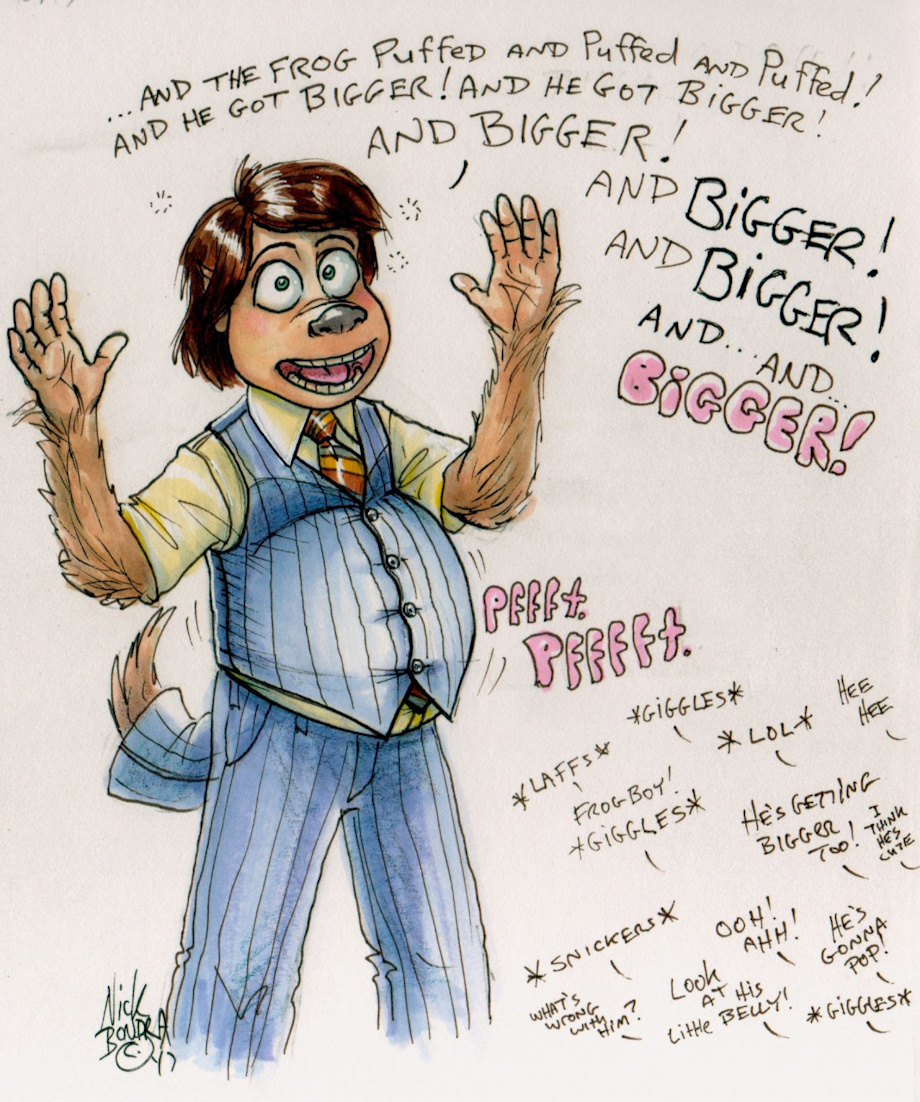 ...AND THE FROG PUFFED AND PUFFED AND PUFFED!
AND HE GOT BIGGER! AND HE GOT BIGGER!
AND BIGGER!
AND BIGGER!
AND BIGGER!
AND...AND...
BIGGER!
PFFFt.
PFFFFFt.
*GIGGLES*
HEE
HEE
*LAFFS*
*LOL*
FROG BOY!
*GIGGLES*
HE'S GETTING
BIGGER
TOO!
I
THINK
HE'S
CUTE
*SNICKERS*
OOH!
AHH!
HE'S
GONNA
POP!
WHAT'S
WRONG
WITH
HIM?
LOOK
AT HIS
LITTLE BELLY!
*GIGGLES*
NICK
BOUDRA
© '17